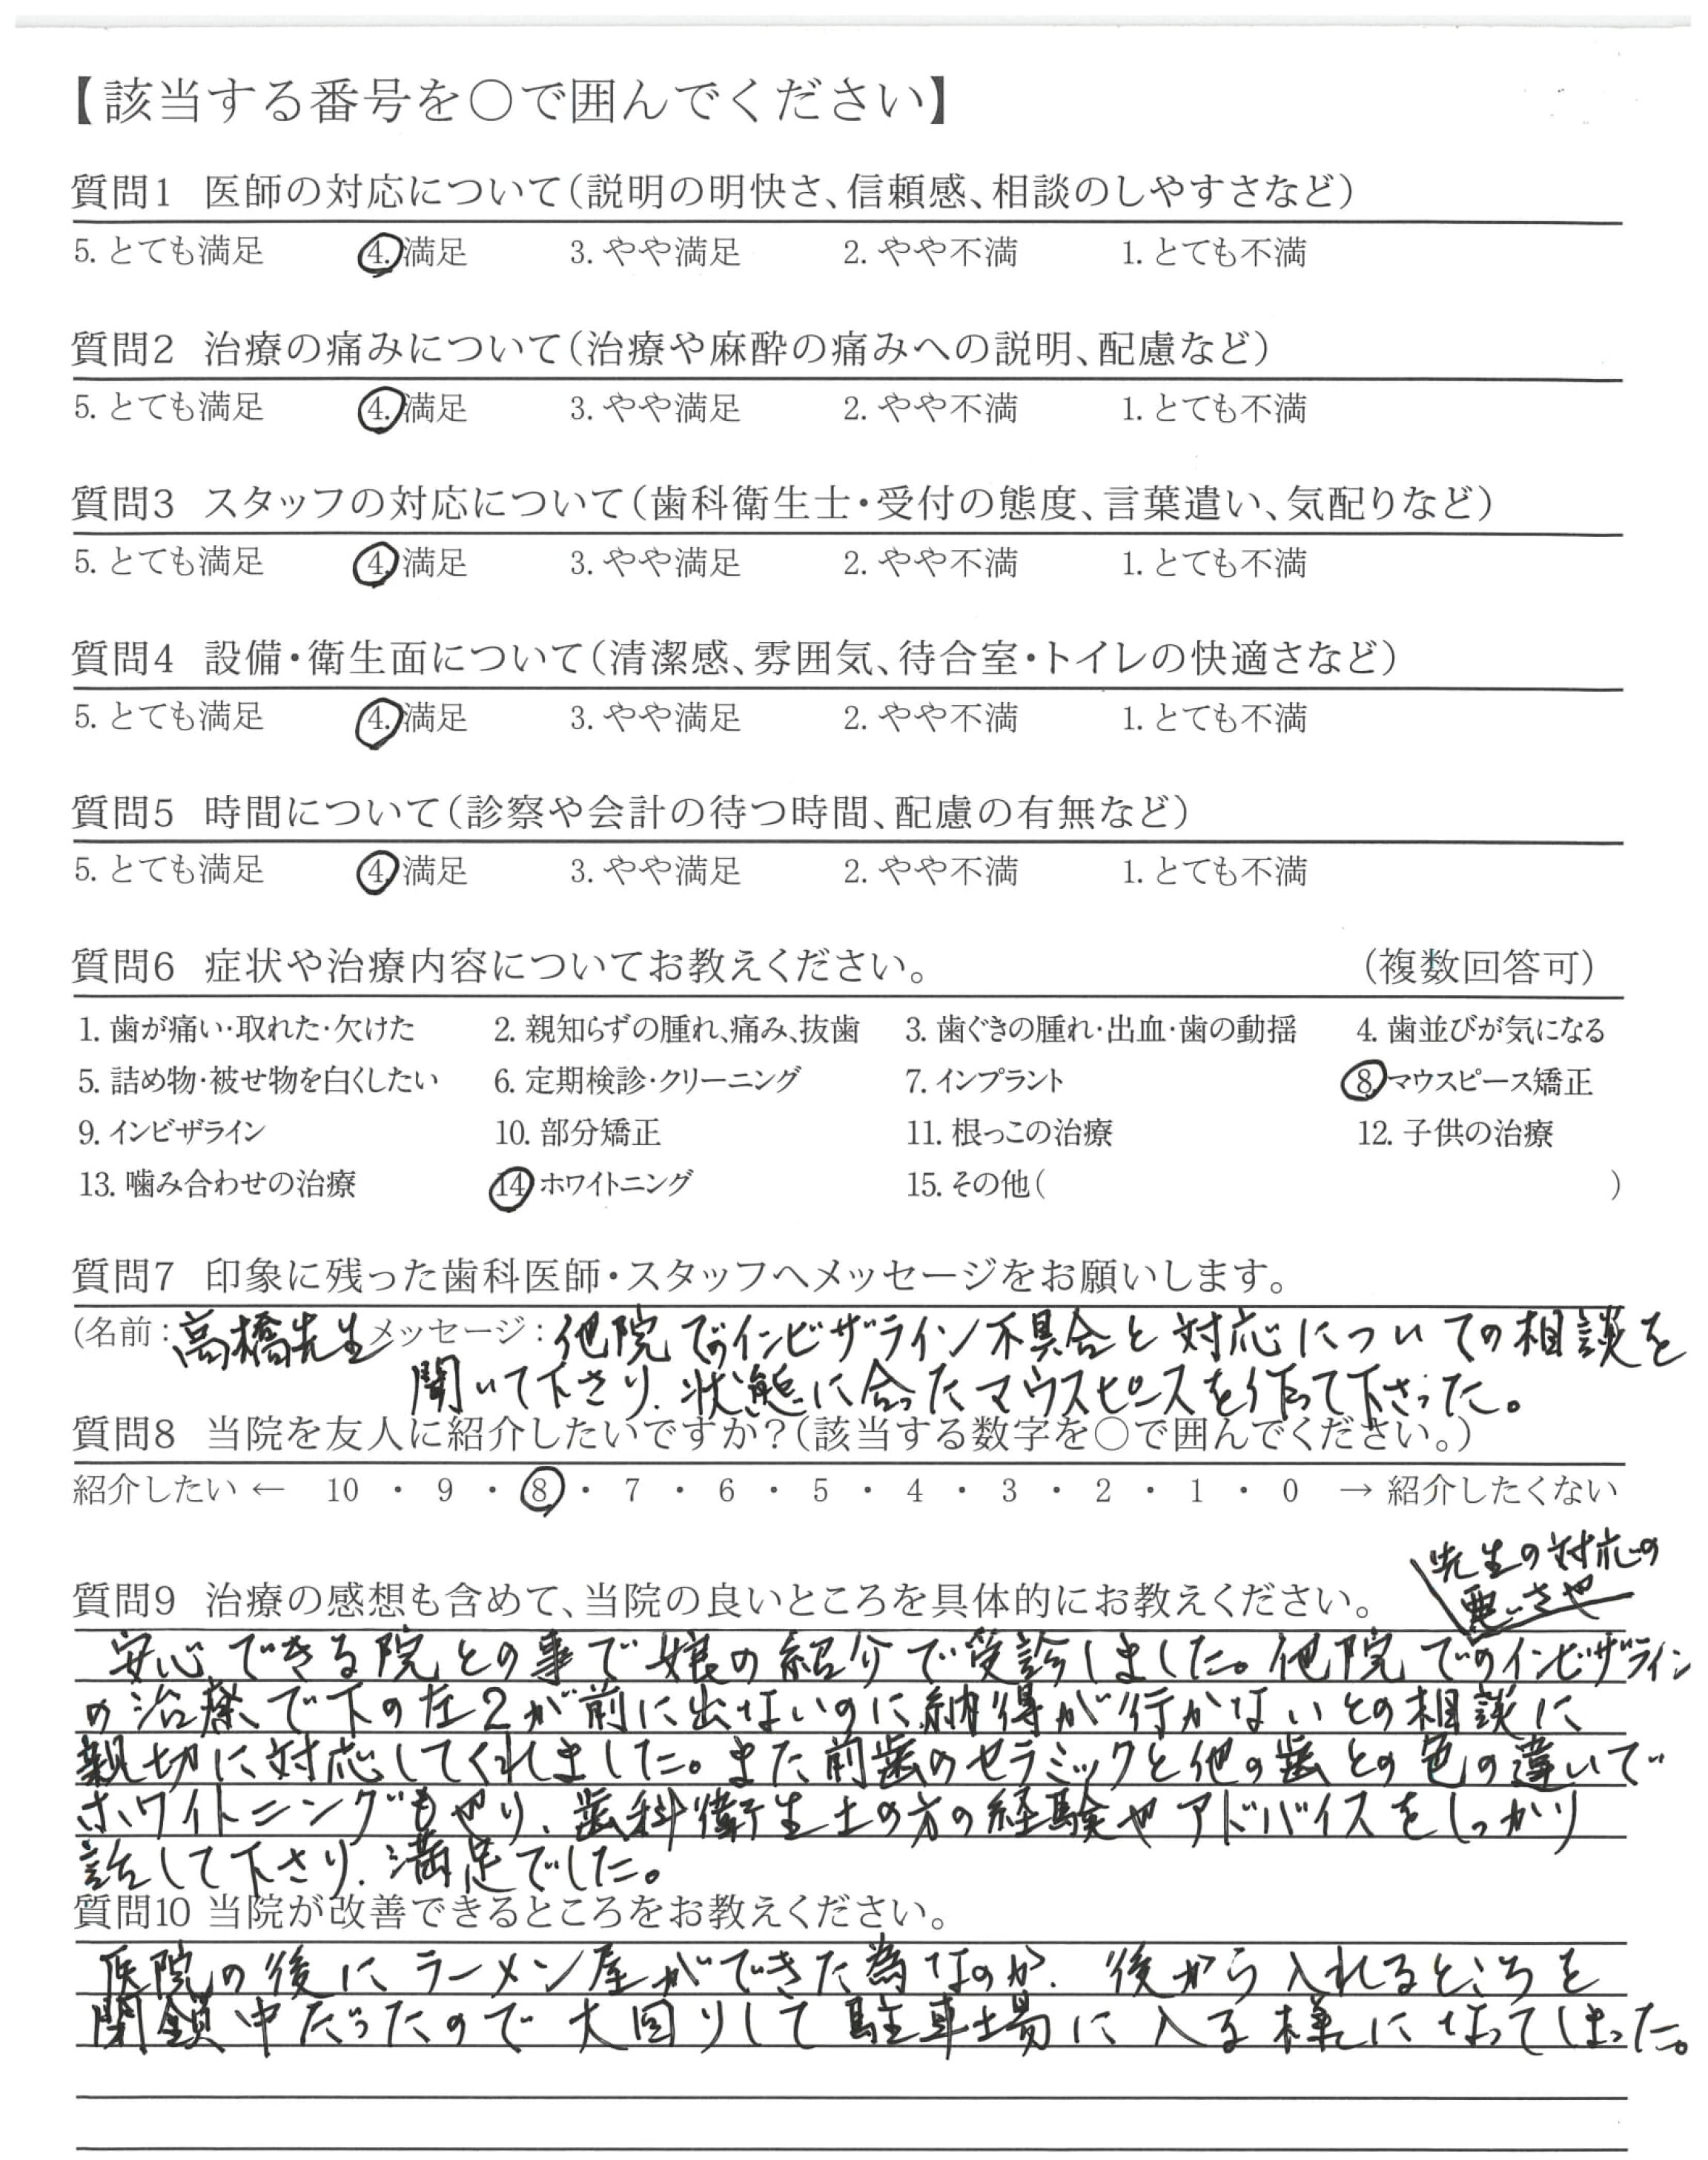 【該当する番号を○で囲んでください】
質問1 医師の対応について(説明の明快さ、信頼感、相談のしやすさなど)
5. とても満足 4. 満足 3. やや満足 2. やや不満 1. とても不満
質問2 治療の痛みについて(治療や麻酔の痛みへの説明、配慮など)
5. とても満足 4. 満足 3. やや満足 2. やや不満 1. とても不満
質問3 スタッフの対応について(歯科衛生士・受付の態度、言葉遣い、気配りなど)
5. とても満足 4. 満足 3. やや満足 2. やや不満 1. とても不満
質問4 設備・衛生面について(清潔感、雰囲気、待合室・トイレの快適さなど)
5. とても満足 4. 満足 3. やや満足 2. やや不満 1. とても不満
質問5 時間について(診察や会計の待つ時間、配慮の有無など)
5. とても満足 4. 満足 3. やや満足 2. やや不満 1. とても不満
質問6 症状や治療内容についてお教えください。 (複数回答可)
1. 歯が痛い・取れた・欠けた 2. 親知らずの腫れ、痛み、抜歯 3. 歯ぐきの腫れ・出血・歯の動揺 4. 歯並びが気になる
5. 詰め物・被せ物を白くしたい 6. 定期検診・クリーニング 7. インプラント 8. マウスピース矯正
9. インビザライン 10. 部分矯正 11. 根っこの治療 12. 子供の治療
13. 噛み合わせの治療 14. ホワイトニング 15. その他( )
質問7 印象に残った歯科医師・スタッフへメッセージをお願いします。
(名前:高橋先生 メッセージ:他院でのインビザライン不具合と対応についての相談を
聞いて下さり、状態に合ったマウスピースを作って下さった。
質問8 当院を友人に紹介したいですか?(該当する数字を○で囲んでください。)
紹介したい ← 10 ・ 9 ・ 8 ・ 7 ・ 6 ・ 5 ・ 4 ・ 3 ・ 2 ・ 1 ・ 0 → 紹介したくない
先生の対応の
悪いさや
質問9 治療の感想も含めて、当院の良いところを具体的にお教えください。
安心できる院との事で娘の紹介で受診しました。他院でのインビザライン
の治療で下の左2が前に出ないのに納得が行かないとの相談に
親切に対応してくれました。また前歯のセラミックと他の歯との色の違いで
ホワイトニングもやり、歯科衛生士の方の経験やアドバイスをしっかり
話して下さり、満足でした。
質問10 当院が改善できるところをお教えください。
医院の後にラーメン屋ができた為なのか、後から入れるところを
閉鎖中だったので大回りして駐車場に入る様になってしまった。